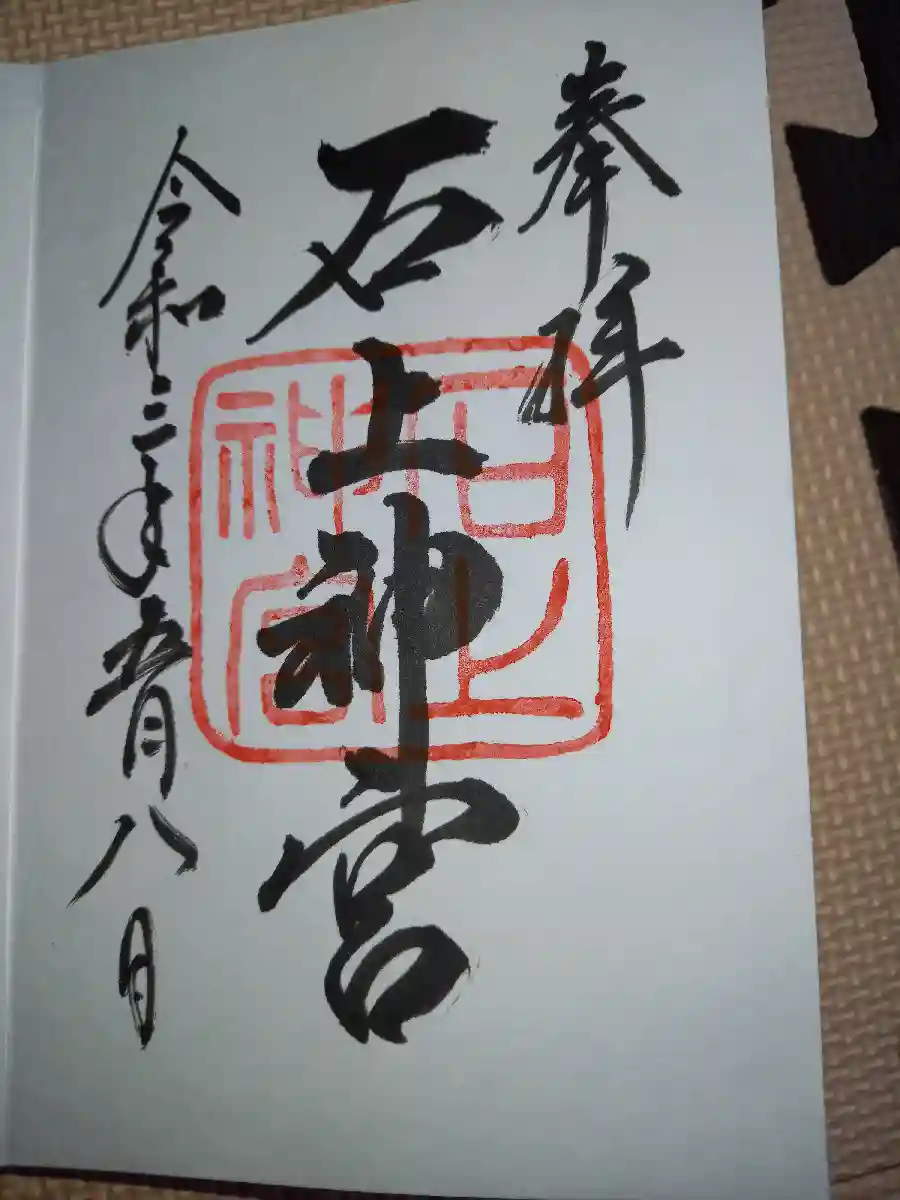 奉拝
石上神宮
令和三年五月八日
石上
神宮